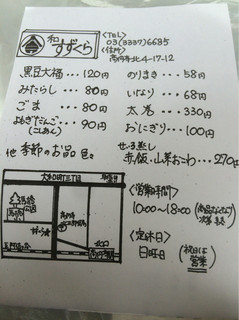 和 すずくら
〈TEL〉
03(3337)6685
〈住所〉
高円寺北4-17-12
黒豆大福…120円
みたらし…80円
ごま…80円
よもぎだんご…90円
(こしあん)
のりまき…58円
いなり…68円
太巻…330円
おにぎり…100円
他 季節のお品 色々
せいろ蒸し
赤飯・山菜おこわ…270
大和町三丁目
〈営業時間〉
10:00〜18:00
〈定休日〉
日曜日
(祝日は営業)
北口